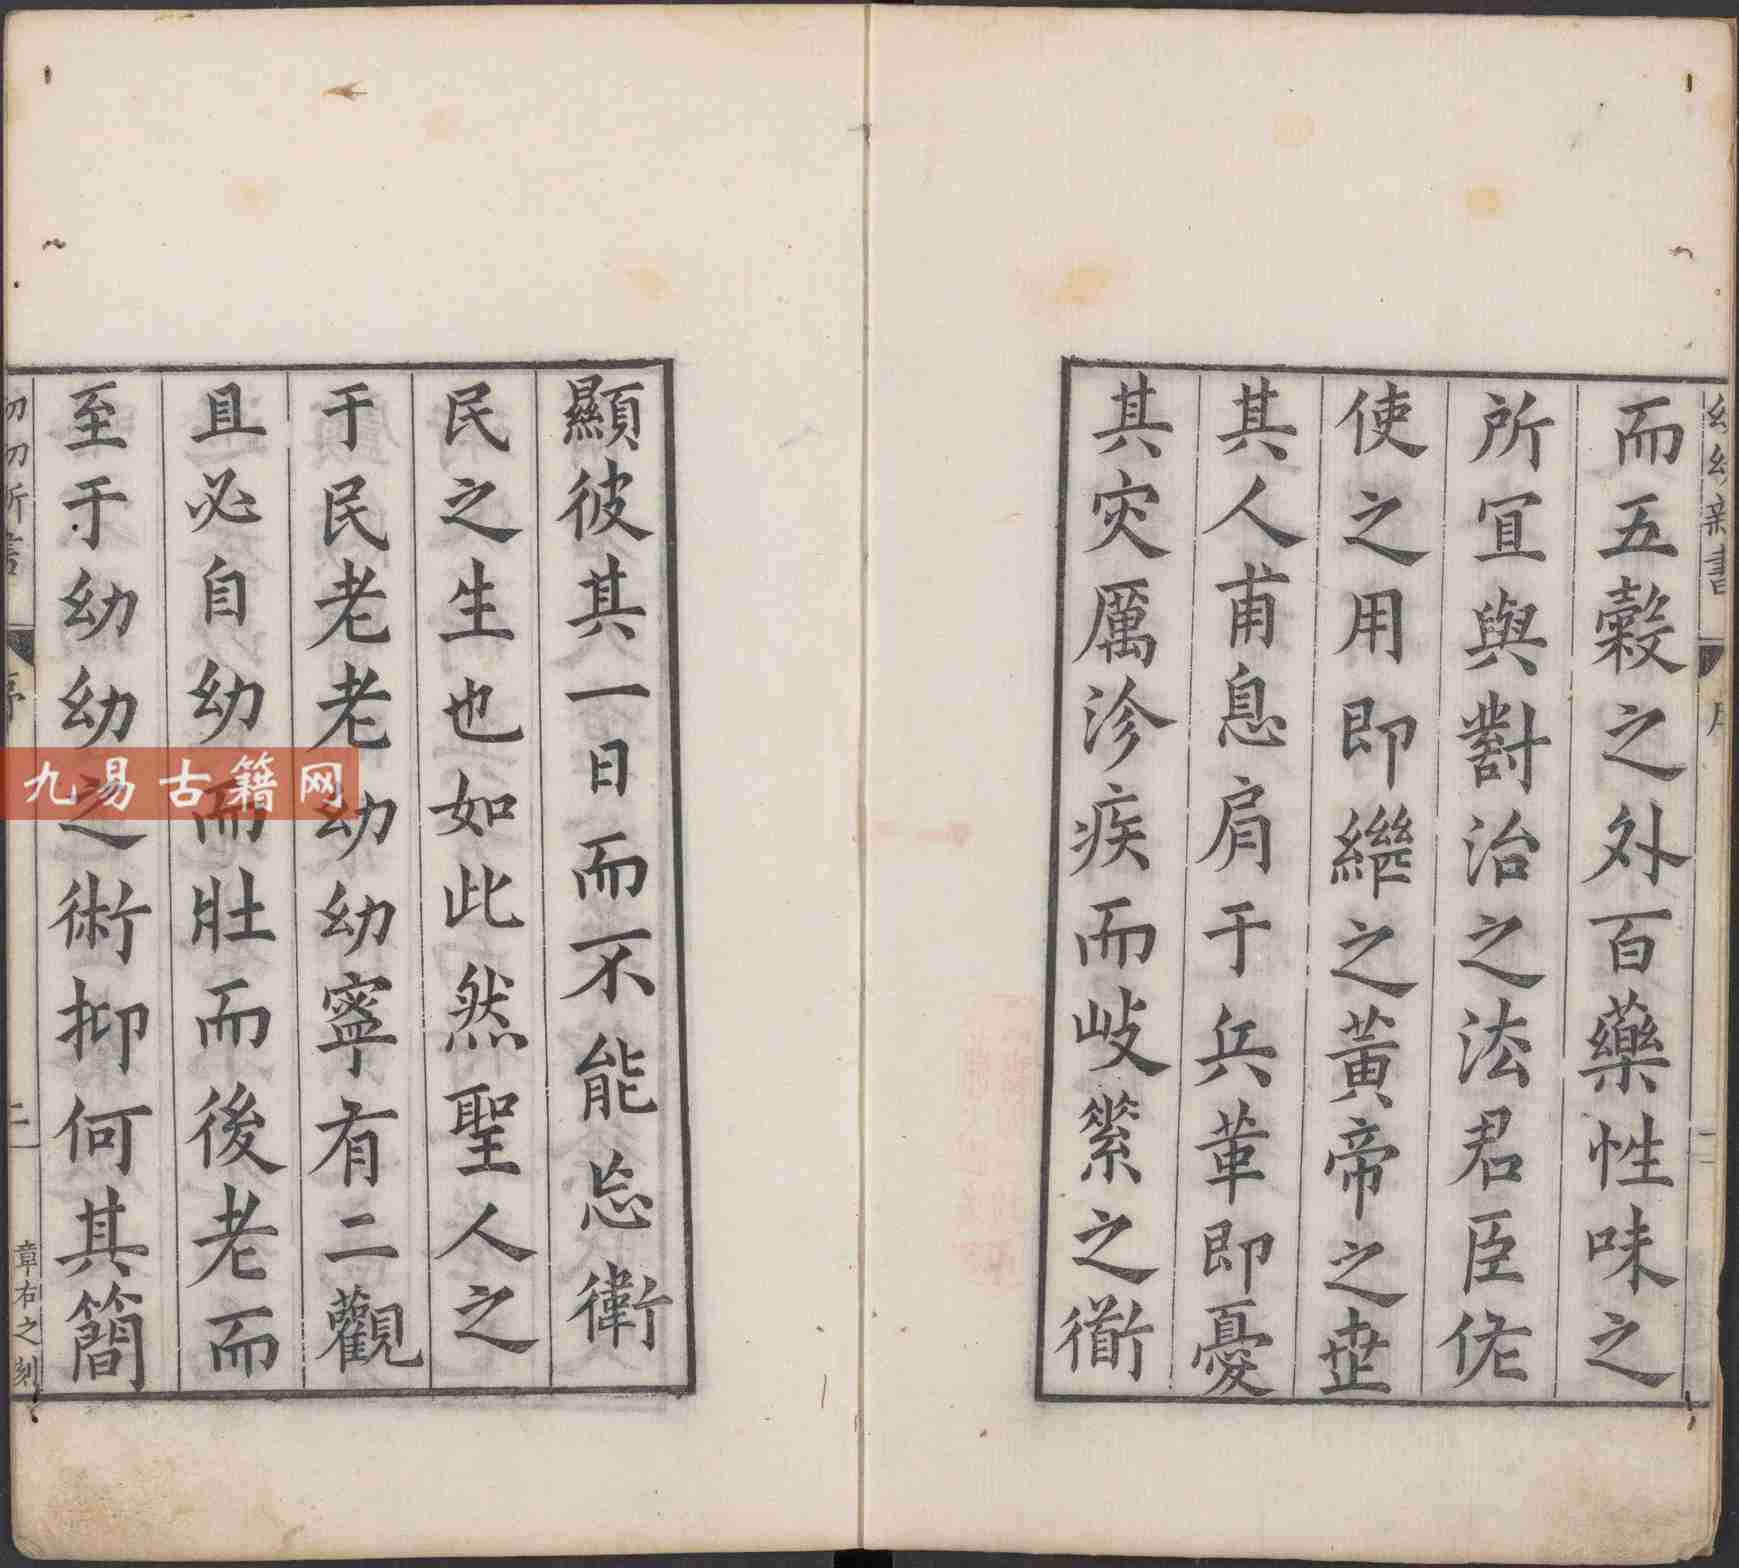 幼幼新書
序
二
而五穀之外百藥性味之
所冝與對治之法君臣佐
使之用即繼之黃帝之世
其人甫息肩于兵革即憂
其灾厲沴疾而岐之衜
顯彼其一日而不能忘衛
民之生也如此然聖人之
于民老老幼幼寧有二觀
且必自幼而壯而後老而
至于幼幼之術抑何其簡
幼幼新書
序
二
章右之刻
九易古籍网